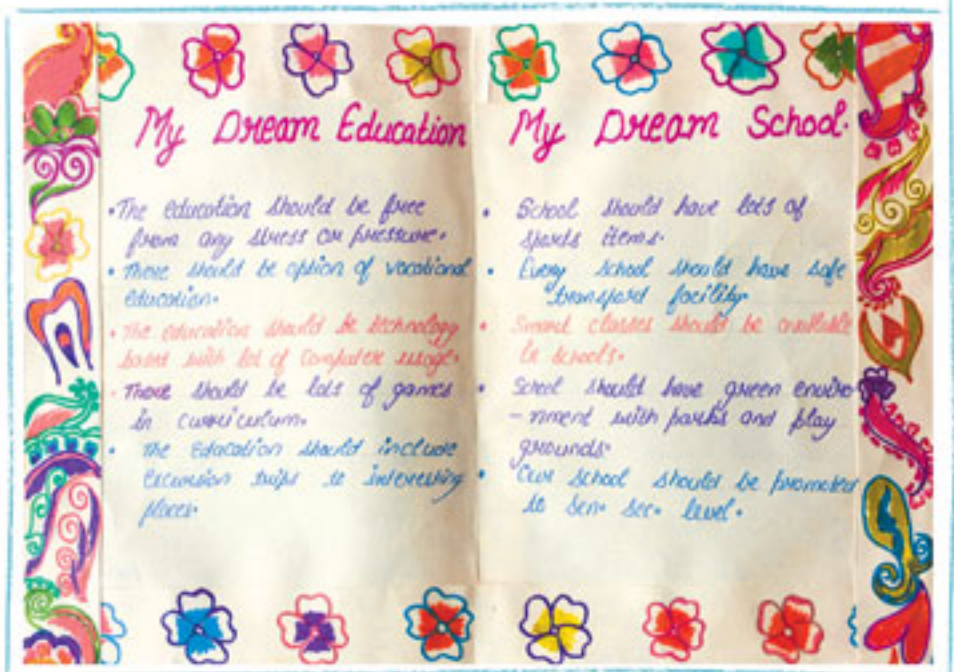 My Dream Education
• The education should be free
from any stress or pressure.
• There should be option of vocational
education.
• The education should be technology
based with lot of Computer usage.
• There should be lots of games
in curriculum.
• The Education should include
Excursion trips to interesting
places.
My Dream School.
• School should have lots of
sports items.
• Every school should have safe
transport facility.
• Smart classes should be available
in schools.
• School should have green enviro
-nment with parks and play
grounds.
• Our school should be promoted
to sen. sec. level.